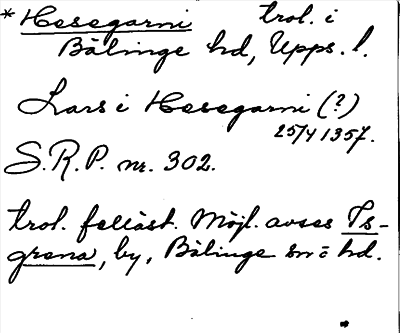 * Hesegarni trol. i
Bälinge hd, Upps. l.
Lars i Hesegarni (?)
25/4 1357.
S.R.P. nr. 302.
trol. felläst. Möjl. avses Is-
grena, by, Bälinge sn o hd.